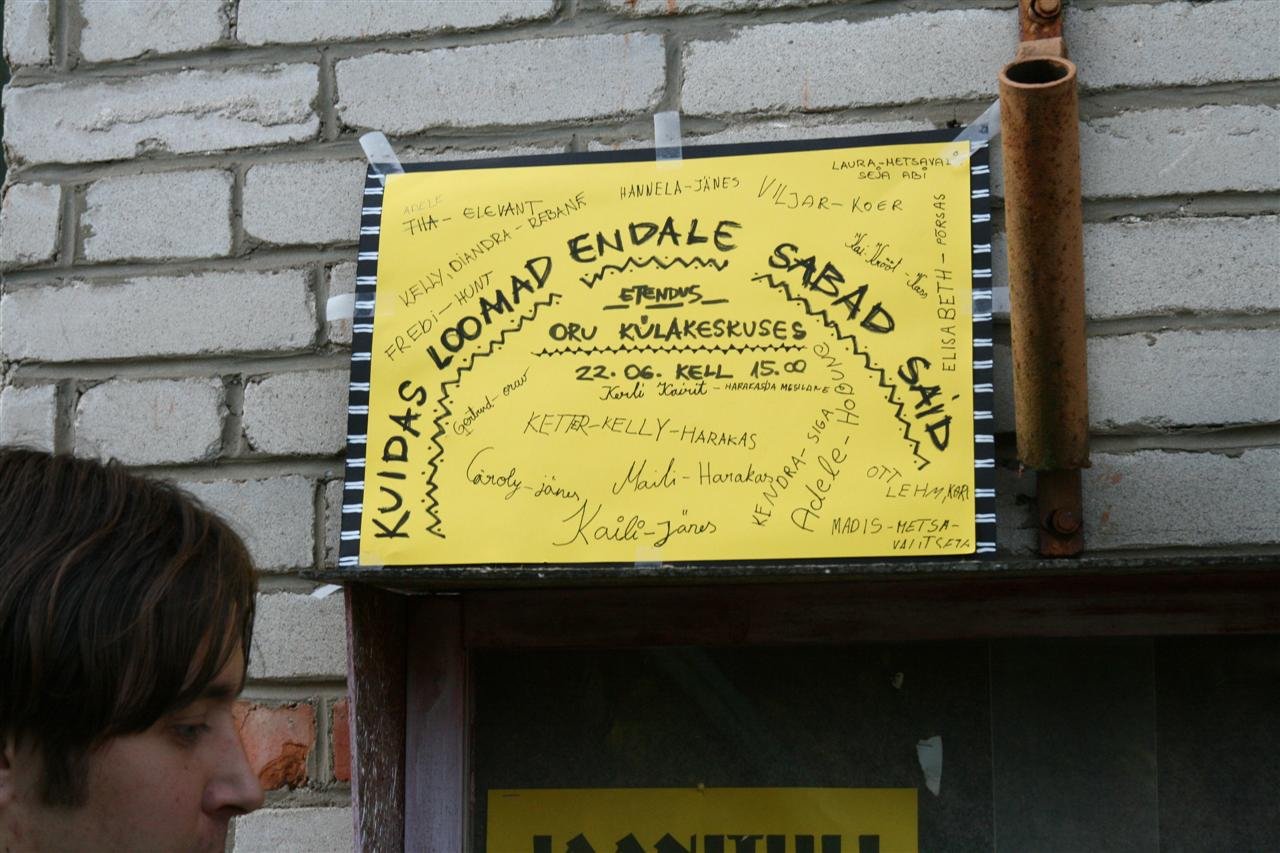 LAURA-METSAVALI
SEJA ABI
ADELE
THA- ELEVANT
HANNELA-JÄNES
VILJAR-KOER
KELLY, DIANDRA-REBANE
FREBI-HUNT
Kai Kroot - Kass
ELISABETH-PÕRSAS
KUIDAS LOOMAD ENDALE SABAD SAID
ETENDUS
ORU KÜLAKESKUSES
22.06. KELL 15.00
Kerli Kairit - HARAKASDA MESILANE
Gertrud-orav
KETTER-KELLY-HARAKAS
Caroly-jänes
Maili-Harakas
Kaili-jänes
KENDRA-SIGA
Adele-HOBUNE
OTT
LEHM, KARI
MADIS-METSA-
VALITSEJA
JAANITULI